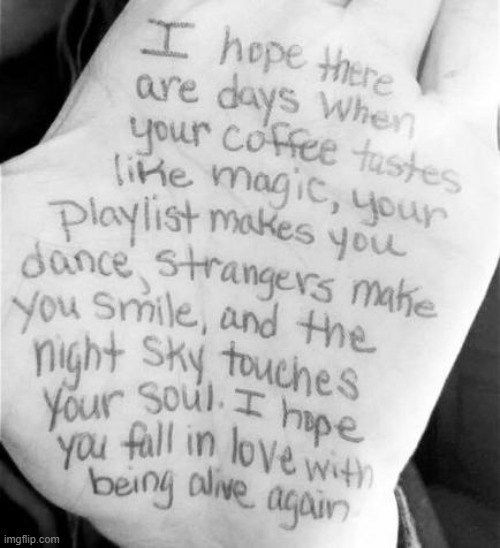 I hope there
are days when
your coffee tastes
like magic, your
playlist makes you
dance, strangers make
you smile, and the
night sky touches
your soul. I hope
you fall in love with
being alive again
imgflip.com